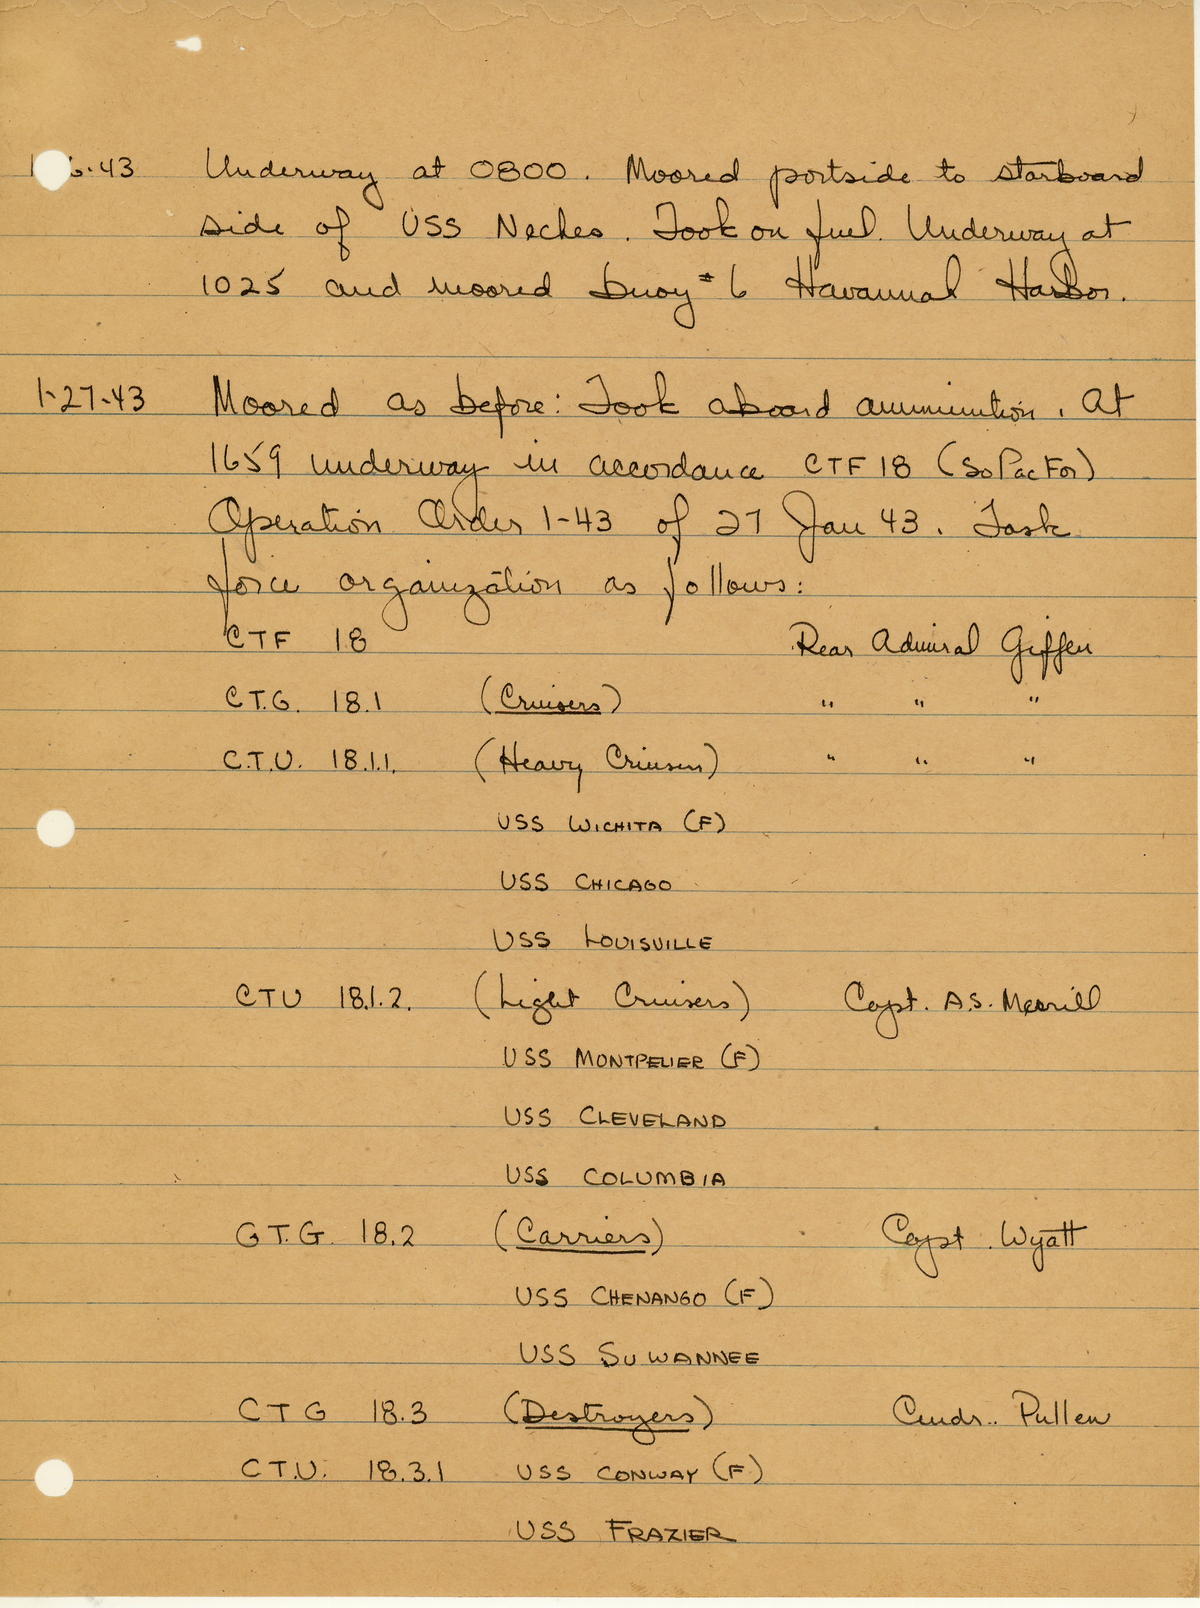 6-43 Underway at 0800. Moored portside to starboard
side of USS Neches. Took on fuel. Underway at
1025 and moored buoy #6 Havannah Harbor.
1-27-43 Moored as before: Took aboard ammunition. At
1659 underway in accordance CTF 18 (SoPacFor)
Operation Order 1-43 of 27 Jan 43. Task
force organization as follows:
CTF 18 Rear Admiral Giffen
C.T.G. 18.1 (Cruisers) " " "
C.T.U. 18.1.1. (Heavy Cruisers) " " "
USS WICHITA (F)
USS CHICAGO
USS LOUISVILLE
CTU 18.1.2. (Light Cruisers) Capt. A.S. Merrill
USS MONTPELIER (F)
USS CLEVELAND
USS COLUMBIA
C.T.G. 18.2 (Carriers) Capt. Wyatt
USS CHENANGO (F)
USS SUWANNEE
CTG 18.3 (Destroyers) Cmdr.. Pullen
C.T.U. 18.3.1 USS CONWAY (F)
USS FRAZIER